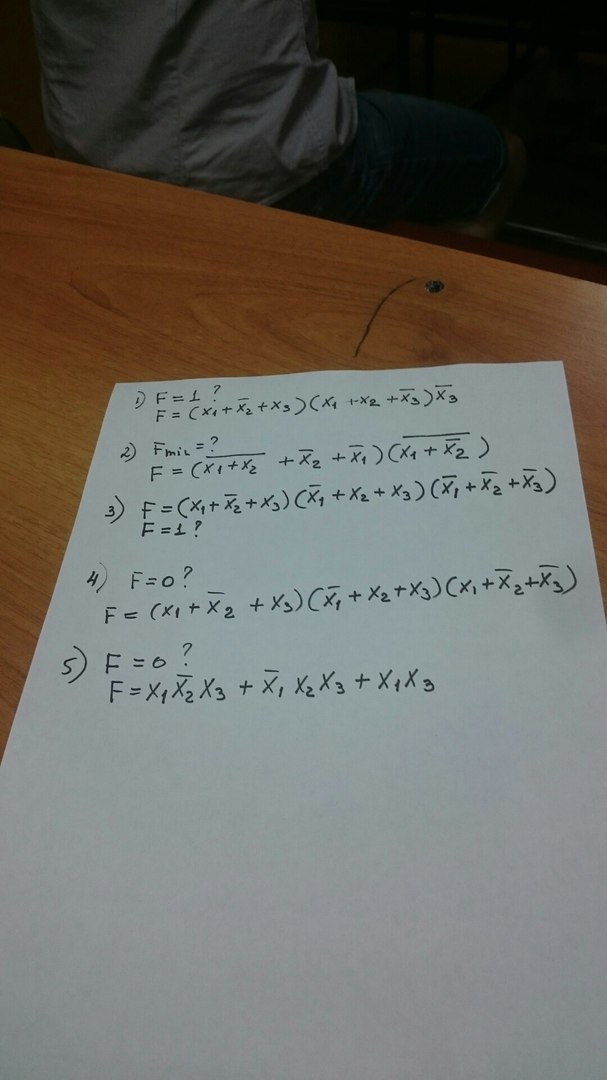 1) F = 1 ?
F = (x₁ + x̄₂ + x₃)(x₁ + x₂ + x̄₃)x̄₃
2) Fmin = ?
F = (x̅₁̅ ̅+̅ ̅x̅₂̅ + x̄₂ + x̄₁)(x̅₁̅ ̅+̅ ̅x̄̅₂̅)
3) F = (x₁ + x̄₂ + x₃)(x̄₁ + x₂ + x₃)(x̄₁ + x̄₂ + x̄₃)
F = 1 ?
4) F = 0 ?
F = (x₁ + x̄₂ + x₃)(x̄₁ + x₂ + x₃)(x₁ + x̄₂ + x̄₃)
5) F = 0 ?
F = x₁x̄₂x₃ + x̄₁x₂x₃ + x₁x₃